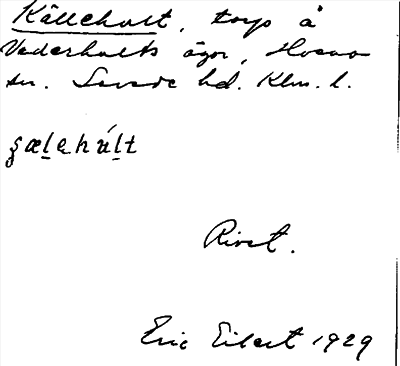 Källehult, torp å
Vederhults ägor, Hvena
sn. Sevede hd. Klm. l.
ʂæl̠ehúl̠t
Rivet.
Eric Eilert 1929